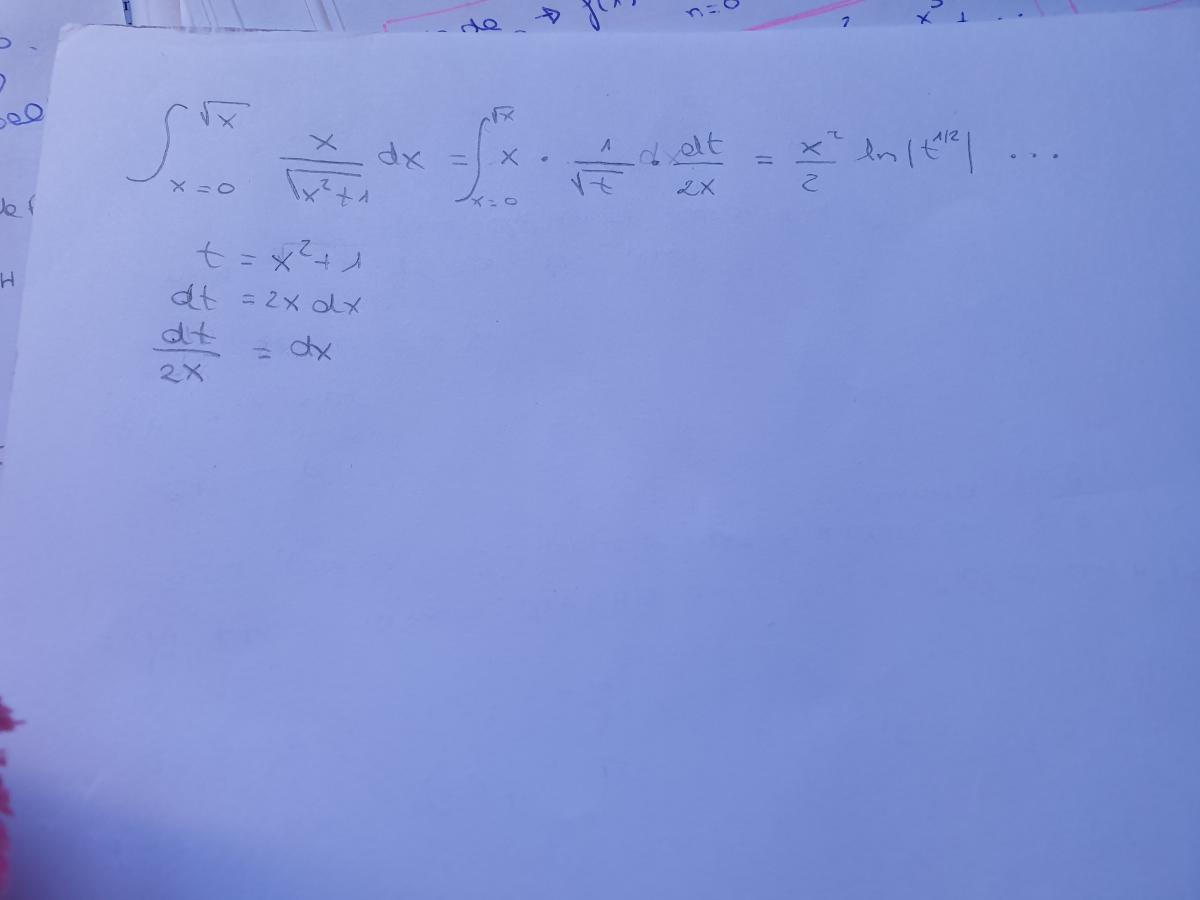 de → f(x) n=0 x³ + ...
∫_{x=0}^{√x} x/√(x²+1) dx = ∫_{x=0}^{√x} x · 1/√t dt/2x = x²/2 ln|t^{1/2}| ...
t = x²+1
dt = 2x dx
dt/2x = dx